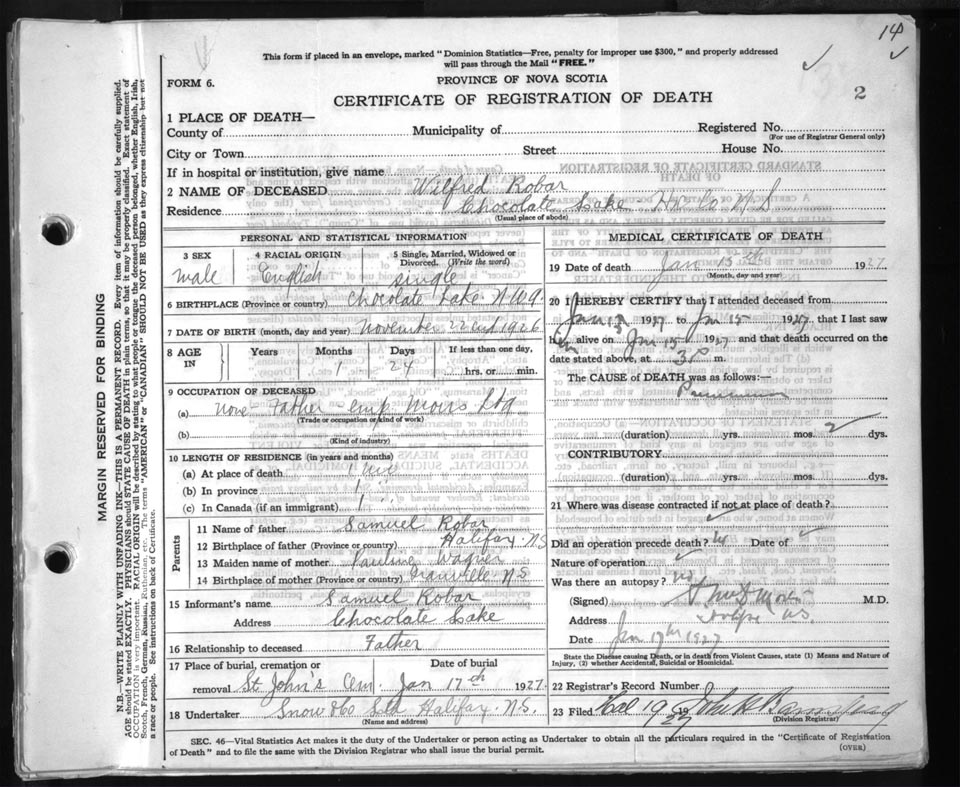 14
This form if placed in an envelope, marked "Dominion Statistics—Free, penalty for improper use $300," and properly addressed
will pass through the Mail "FREE."
FORM 6.
PROVINCE OF NOVA SCOTIA
CERTIFICATE OF REGISTRATION OF DEATH
2
1 PLACE OF DEATH—
County of Municipality of Registered No.
(For use of Registrar General only)
City or Town Street House No.
If in hospital or institution, give name
2 NAME OF DECEASED Wilfred Robar
Residence Chocolate Lake N.S
(Usual place of abode)
PERSONAL AND STATISTICAL INFORMATION
3 SEX 4 RACIAL ORIGIN 5 Single, Married, Widowed or
Divorced. (Write the word)
Male English Single
6 BIRTHPLACE (Province or country) Chocolate Lake N.W.A.
7 DATE OF BIRTH (month, day and year) November 22nd 1926
8 AGE IN Years Months Days If less than one day,
1 24 hrs. or min.
9 OCCUPATION OF DECEASED
(a) None - Father emp. Moirs Ltd
(Trade or occupation or kind of work)
(b)
(Kind of industry)
10 LENGTH OF RESIDENCE (in years and months)
(a) At place of death 1
(b) In province 1
(c) In Canada (if an immigrant) 1
Parents
11 Name of father Samuel Robar
12 Birthplace of father (Province or country) Halifax N.S
13 Maiden name of mother Pauline Wagner
14 Birthplace of mother (Province or country) N.S
15 Informant's name Samuel Robar
Address Chocolate Lake
16 Relationship to deceased Father
17 Place of burial, cremation or Date of burial
removal St John's Cem. Jan 17th 1927
18 Undertaker Snow & Co Ltd Halifax N.S.
(Name and address)
MEDICAL CERTIFICATE OF DEATH
19 Date of death Jan 15th 1927
(Month, day and year)
20 I HEREBY CERTIFY that I attended deceased from
Jan 13 1927 to Jan 15 1927, that I last saw
him alive on Jan 15 1927 and that death occurred on the
date stated above, at 3 m.
The CAUSE of DEATH was as follows:—
Pneumonia
(duration) yrs. mos. 2 dys.
CONTRIBUTORY
(duration) yrs. mos. dys.
21 Where was disease contracted if not at place of death?
Did an operation precede death? No Date of
Nature of operation
Was there an autopsy? no
(Signed) M.D.
Address N.S.
Date Jan 17th 1927
State the Disease causing Death, or in death from Violent Causes, state (1) Means and Nature of
Injury, (2) whether Accidental, Suicidal or Homicidal.
22 Registrar's Record Number
23 Filed 19 1927
(Division Registrar)
SEC. 46—Vital Statistics Act makes it the duty of the Undertaker or person acting as Undertaker to obtain all the particulars required in the "Certificate of Registration
of Death" and to file the same with the Division Registrar who shall issue the burial permit.
(OVER)
MARGIN RESERVED FOR BINDING
N.B.—WRITE PLAINLY WITH UNFADING INK—THIS IS A PERMANENT RECORD. Every item of information should be carefully supplied.
AGE should be stated EXACTLY. PHYSICIANS should STATE CAUSE OF DEATH in plain terms, so that it may be properly classified. Exact statement of
OCCUPATION is very important. RACIAL ORIGIN will be described by stating to what people or tongue the deceased person belonged, whether English, Irish,
Scotch, French, German, Russian, Ruthenian, etc. The terms "AMERICAN" or "CANADIAN" SHOULD NOT BE USED as they express citizenship but not
a race or people. See instructions on back of Certificate.